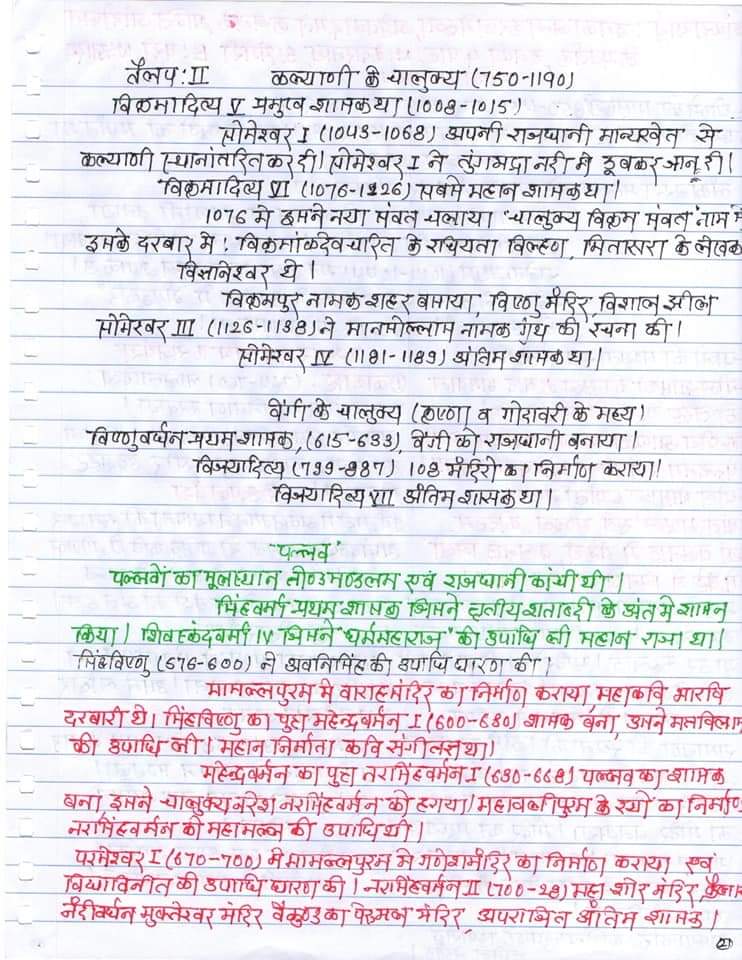 तैलप:II कल्याणी के चालुक्य (750-1190)
विक्रमादित्य V प्रमुख शासक था (1008-1015)
सोमेश्वर I (1043-1068) अपनी राजधानी मान्यखेत से
कल्याणी स्थानांतरित कर दी। सोमेश्वर I ने तुंगभद्रा नदी में डूबकर जान दी।
विक्रमादित्य VI (1076-1226) सबसे महान शासक था।
1076 में इसने नया संवत चलाया "चालुक्य विक्रम संवत" नाम से
इसके दरबार में: विक्रमांकदेवचरित के रचियता विल्हण, मितासरा के लेखक
विज्ञानेश्वर थे।
विक्रमपुर नामक शहर बसाया, विष्णु मंदिर, विशाल झील
सोमेश्वर III (1126-1138) ने मानसोल्लास नामक ग्रंथ की रचना की।
सोमेश्वर IV (1181-1189) अंतिम शासक था।
वेंगी के चालुक्य (कृष्णा व गोदावरी के मध्य)
विष्णुवर्धन प्रथम शासक, (615-633), वेंगी को राजधानी बनाया।
विजयादित्य (799-887) 108 मंदिरों का निर्माण कराया।
विजयादित्य VII अंतिम शासक था।
"पल्लव"
पल्लवों का मूलस्थान तोण्डमण्डलम एवं राजधानी कांची थी।
सिंहवर्मा प्रथम शासक जिसने तृतीय शताब्दी के अंत में शासन
किया। शिवस्कंदवर्मा IV जिसने "धर्ममहाराज" की उपाधि ली महान राजा था।
सिंहविष्णु (576-600) ने अवनिसिंह की उपाधि धारण की।
मामल्लपुरम में वाराह मंदिर का निर्माण कराया, महाकवि भारवि
दरबारी थे। सिंहविष्णु का पुत्र महेन्द्रवर्मन I (600-630) शासक बना, उसने मतविलास
की उपाधि ली। महान निर्माता कवि संगीतज्ञ था।
महेन्द्रवर्मन का पुत्र नरसिंहवर्मन I (630-668) पल्लव का शासक
बना, इसने चालुक्य नरेश नरसिंहवर्मन को हराया। महाबलीपुरम के रथों का निर्माण
नरसिंहवर्मन को महामल्ल की उपाधि थी।
परमेश्वर I (670-700) में मामल्लपुरम में गणेश मंदिर का निर्माण कराया एवं
विद्याविनीत की उपाधि धारण की। नरसिंहवर्मन II (700-28) महा शोर मंदिर, कैलाश
नंदीवर्धन मुक्तेश्वर मंदिर वैकुण्ठ का पेरुमल मंदिर, अपराजित अंतिम शासक।